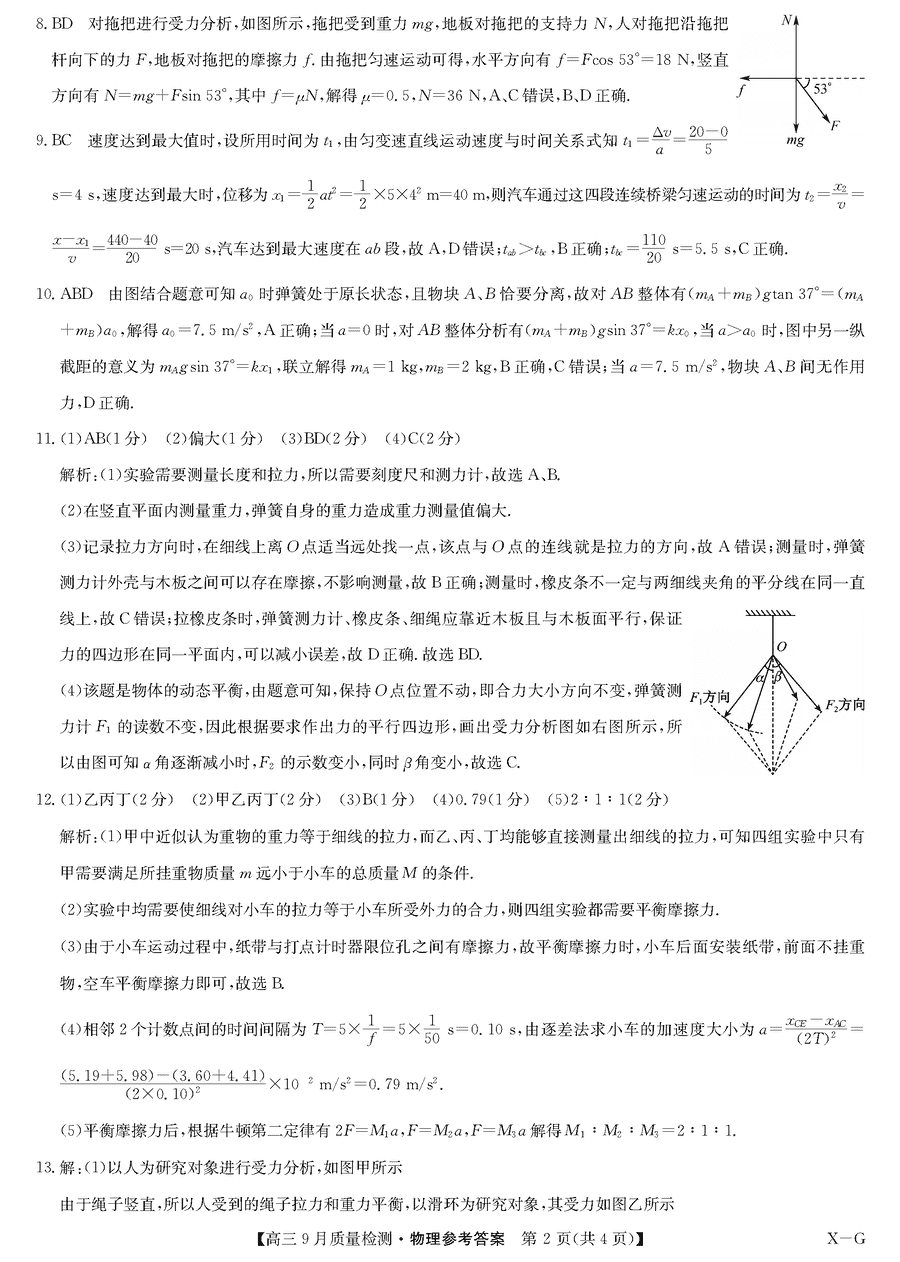 8. BD 对拖把进行受力分析,如图所示,拖把受到重力 mg,地板对拖把的支持力 N,人对拖把沿拖把
杆向下的力 F,地板对拖把的摩擦力 f. 由拖把匀速运动可得,水平方向有 f=Fcos 53°=18 N,竖直
方向有 N=mg+Fsin 53°,其中 f=μN,解得 μ=0.5,N=36 N,A、C 错误,B、D 正确.
N
f
53°
F
mg
9. BC 速度达到最大值时,设所用时间为 t₁,由匀变速直线运动速度与时间关系式知 t₁=Δv/a=(20-0)/5
s=4 s,速度达到最大时,位移为 x₁=1/2 at²=1/2×5×4² m=40 m,则汽车通过这四段连续桥梁匀速运动的时间为 t₂=x₂/v=
(x-x₁)/v=(440-40)/20 s=20 s,汽车达到最大速度在 ab 段,故 A,D 错误;t_ab>t_bc,B 正确;t_bc=110/20 s=5.5 s,C 正确.
10. ABD 由图结合题意可知 a₀ 时弹簧处于原长状态,且物块 A、B 恰要分离,故对 AB 整体有(m_A+m_B)gtan 37°=(m_A
+m_B)a₀,解得 a₀=7.5 m/s²,A 正确;当 a=0 时,对 AB 整体分析有(m_A+m_B)gsin 37°=kx₀,当 a>a₀ 时,图中另一纵
截距的意义为 m_A gsin 37°=kx₁,联立解得 m_A=1 kg,m_B=2 kg,B 正确,C 错误;当 a=7.5 m/s²,物块 A、B 间无作用
力,D 正确.
11. (1)AB(1 分) (2)偏大(1 分) (3)BD(2 分) (4)C(2 分)
解析:(1)实验需要测量长度和拉力,所以需要刻度尺和测力计,故选 A、B.
(2)在竖直平面内测量重力,弹簧自身的重力造成重力测量值偏大.
(3)记录拉力方向时,在细线上离 O 点适当远处找一点,该点与 O 点的连线就是拉力的方向,故 A 错误;测量时,弹簧
测力计外壳与木板之间可以存在摩擦,不影响测量,故 B 正确;测量时,橡皮条不一定与两细线夹角的平分线在同一直
线上,故 C 错误;拉橡皮条时,弹簧测力计、橡皮条、细绳应靠近木板且与木板面平行,保证
力的四边形在同一平面内,可以减小误差,故 D 正确. 故选 BD.
(4)该题是物体的动态平衡,由题意可知,保持 O 点位置不动,即合力大小方向不变,弹簧测
力计 F₁ 的读数不变,因此根据要求作出力的平行四边形,画出受力分析图如右图所示,所
以由图可知 α 角逐渐减小时,F₂ 的示数变小,同时 β 角变小,故选 C.
O
α β
F₁方向
F₂方向
12. (1)乙丙丁(2 分) (2)甲乙丙丁(2 分) (3)B(1 分) (4)0.79(1 分) (5)2∶1∶1(2 分)
解析:(1)甲中近似认为重物的重力等于细线的拉力,而乙、丙、丁均能够直接测量出细线的拉力,可知四组实验中只有
甲需要满足所挂重物质量 m 远小于小车的总质量 M 的条件.
(2)实验中均需要使细线对小车的拉力等于小车所受外力的合力,则四组实验都需要平衡摩擦力.
(3)由于小车运动过程中,纸带与打点计时器限位孔之间有摩擦力,故平衡摩擦力时,小车后面安装纸带,前面不挂重
物,空车平衡摩擦力即可,故选 B.
(4)相邻 2 个计数点间的时间间隔为 T=5×1/f=5×1/50 s=0.10 s,由逐差法求小车的加速度大小为 a=(x_CE-x_AC)/(2T)²=
((5.19+5.98)-(3.60+4.41))/(2×0.10)²×10 ² m/s²=0.79 m/s².
(5)平衡摩擦力后,根据牛顿第二定律有 2F=M₁a,F=M₂a,F=M₃a 解得 M₁∶M₂∶M₃=2∶1∶1.
13. 解:(1)以人为研究对象进行受力分析,如图甲所示
由于绳子竖直,所以人受到的绳子拉力和重力平衡,以滑环为研究对象,其受力如图乙所示
【高三 9 月质量检测·物理参考答案 第 2 页(共 4 页)】 X-G